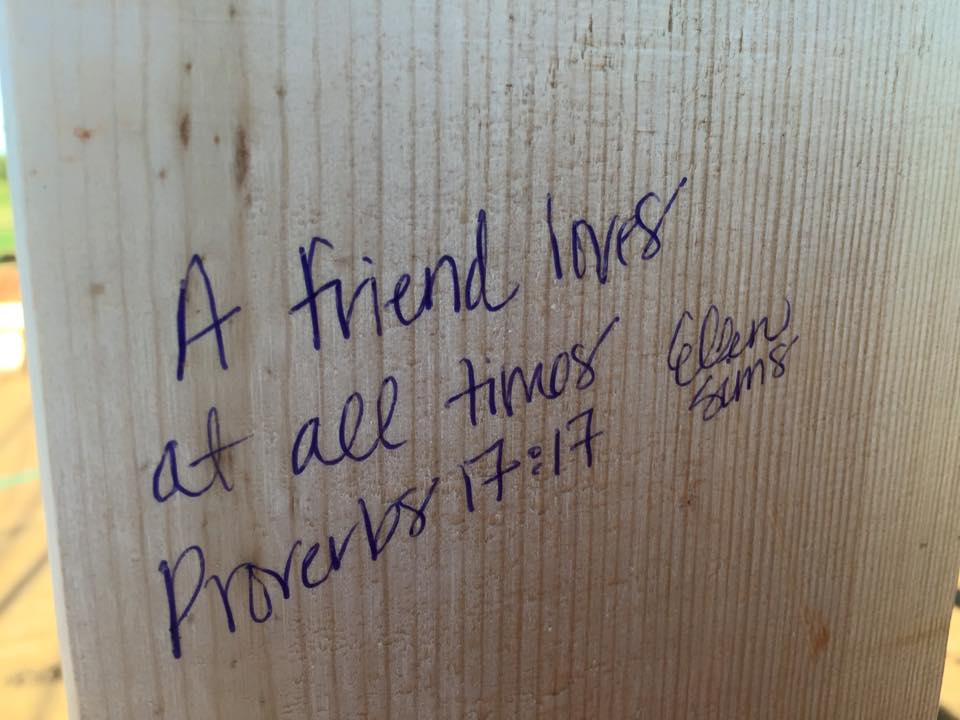 A friend loves
at all times
Proverbs 17:17
Ellen
Sims